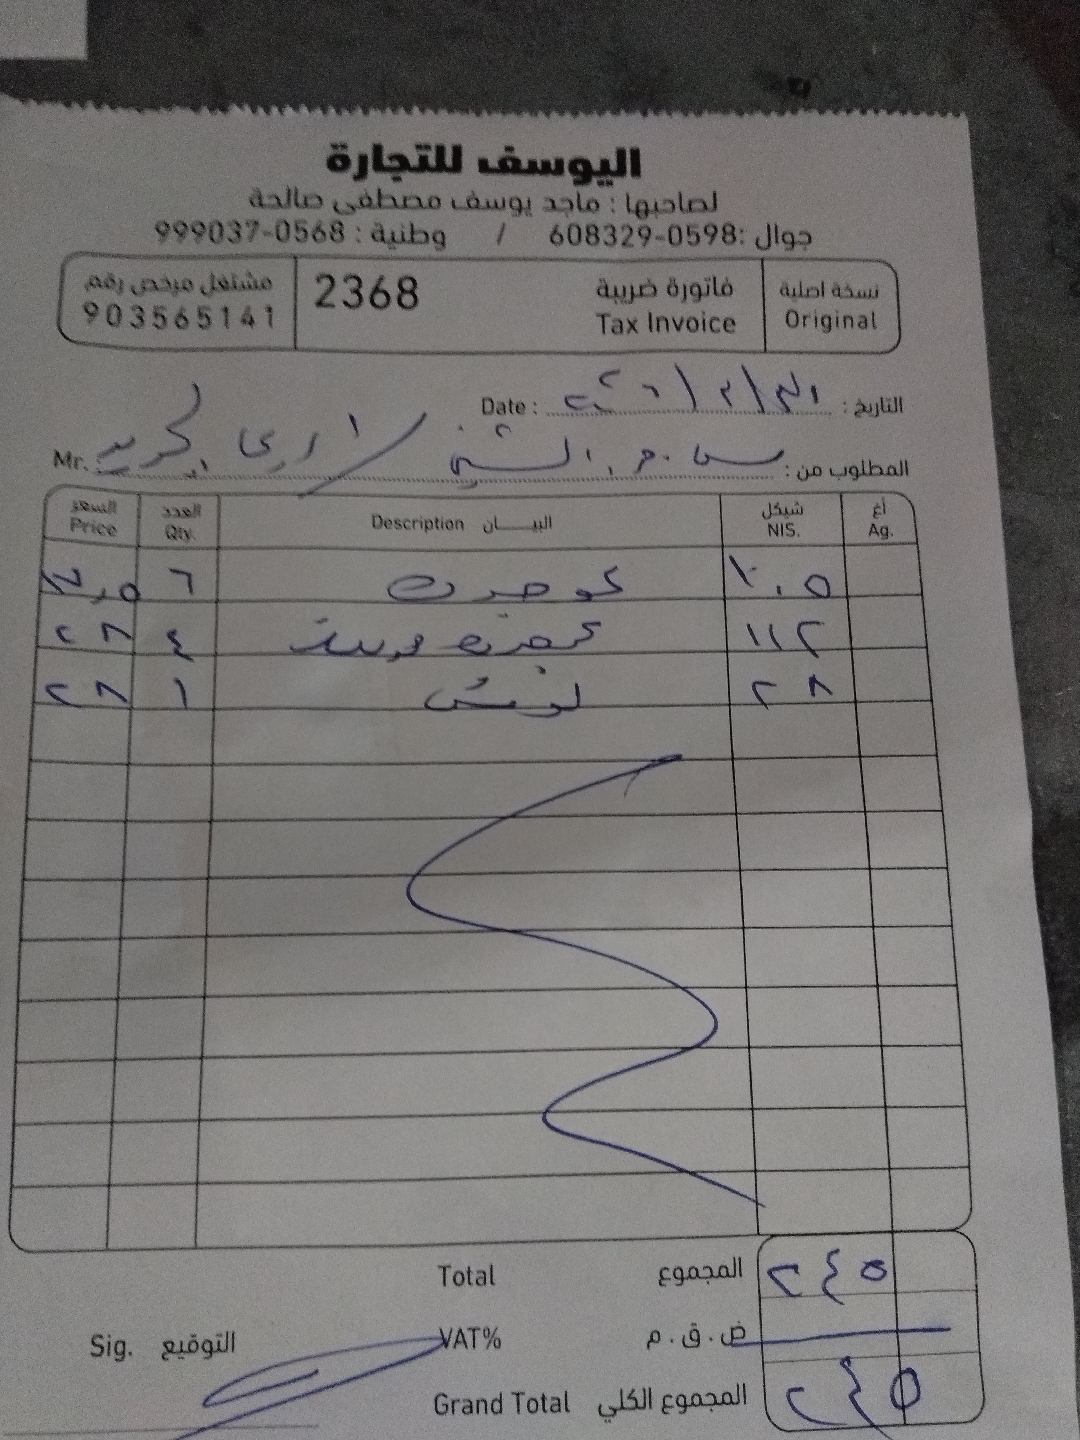 اليوسف للتجارة
لصاحبها : ماجد يوسف مصطفى صالحة
جوال :0598-608329 / وطنية : 0568-999037
نسخة اصلية فاتورة ضريبة 2368 مشتغل مرخص رقم
Original Tax Invoice 903565141
التاريخ : Date :
المطلوب من : Mr.
أغ شيكل البيــــان العدد السعر
Ag. NIS. Description Qty. Price
١٠٥ ٦
١١٢ ٤ ٢٨
٢٨ ١ ٢٨
المجموع Total ٢٤٥
ض . ق . م VAT%
المجموع الكلي Grand Total ٢٤٥
التوقيع Sig.